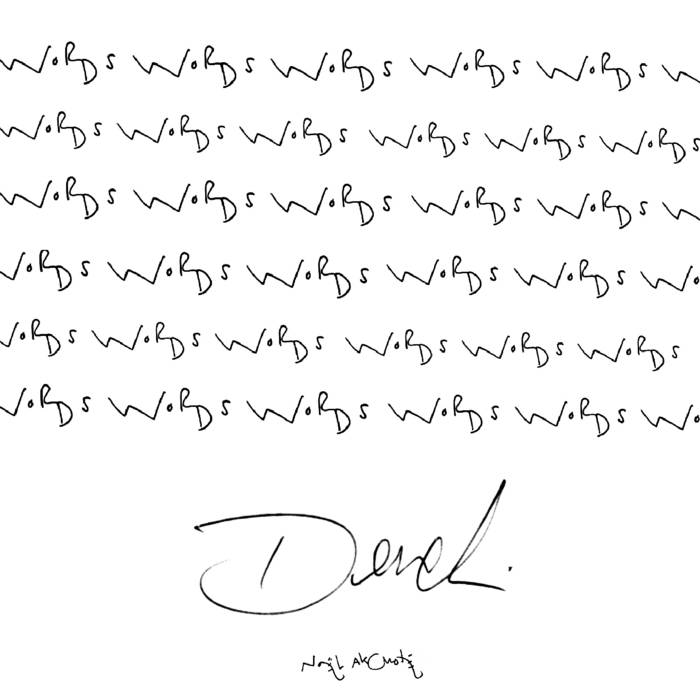 WORDS WORDS WORDS WORDS WORDS W
WORDS WORDS WORDS WORDS WORDS WORDS
WORDS WORDS WORDS WORDS WORDS W
WORDS WORDS WORDS WORDS WORDS WO
WORDS WORDS WORDS WORDS WORDS WORDS
WORDS WORDS WORDS WORDS WORDS WO
Derek.
Noël AkChoté